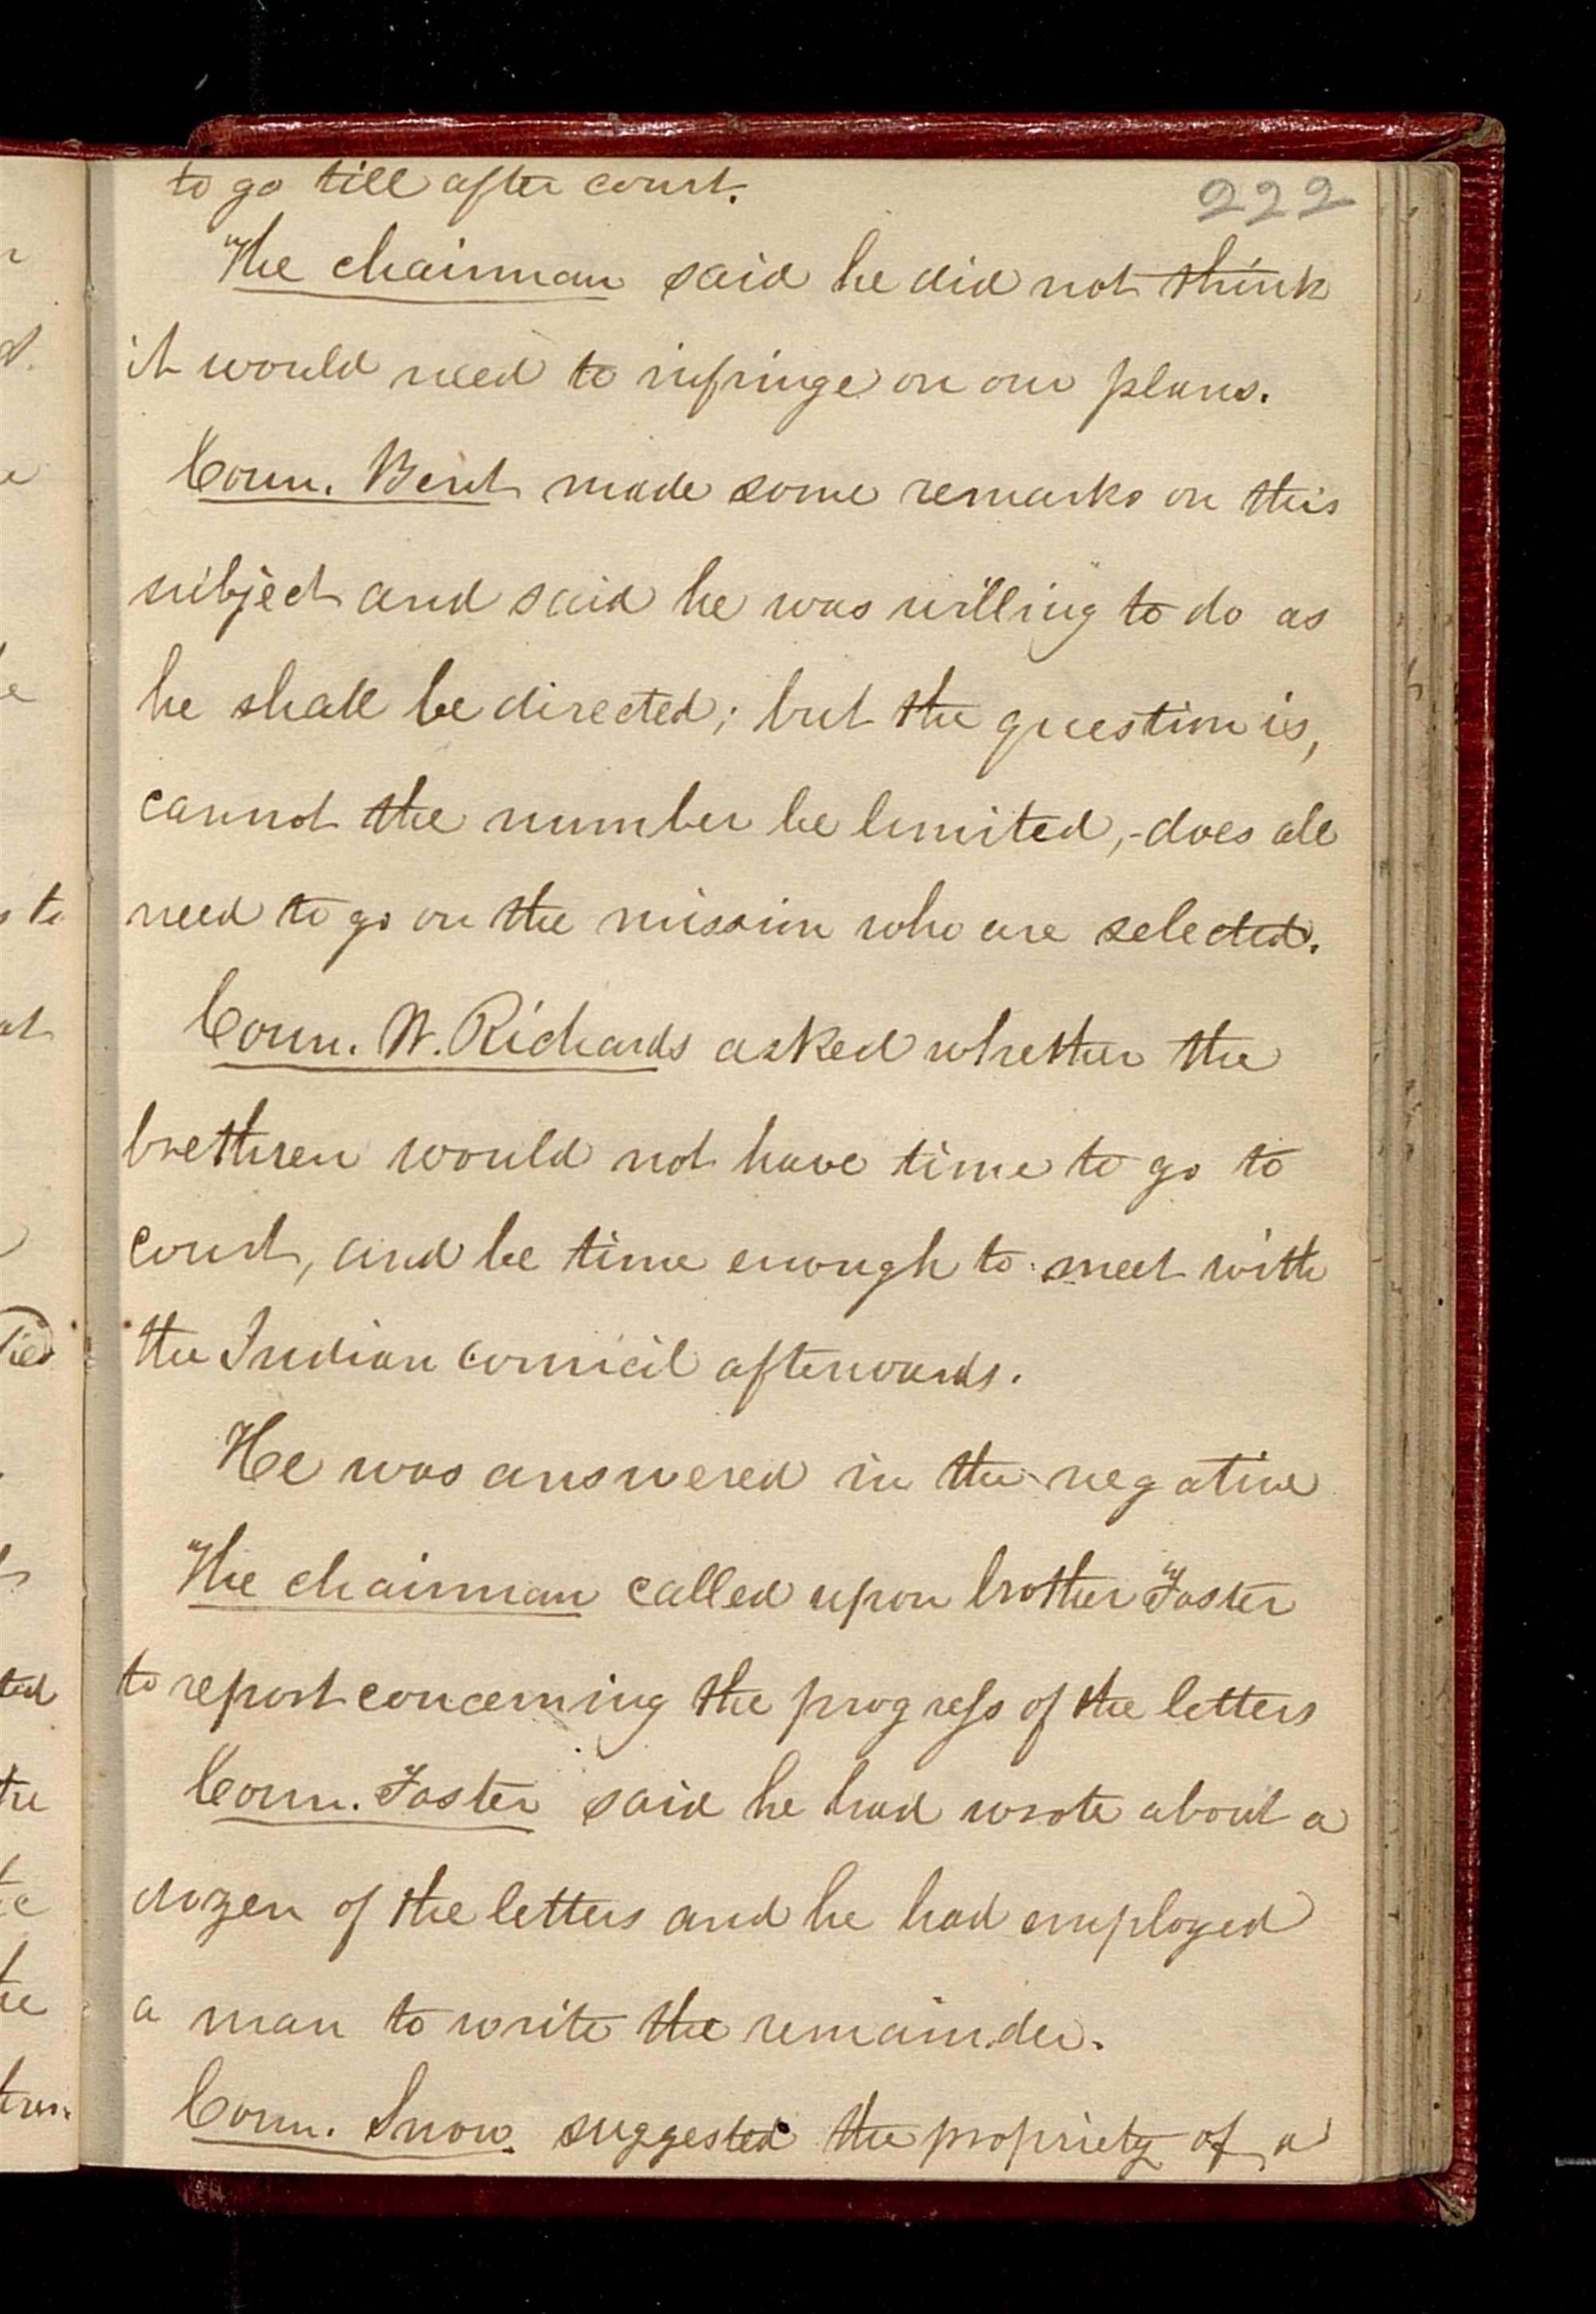 222
to go till after court.
The chairman said he did not think
it would need to infringe on our plans.
Coun. Bent made some remarks on this
subject and said he was willing to do as
he shall be directed; but the question is,
cannot the number be limited,-does all
need to go on the mission who are selected.
Coun. W. Richards asked whether the
brethren would not have time to go to
court, and be time enough to meet with
the Indian council afterwards.
He was answered in the negative
The chairman called upon brother Foster
to report concerning the progress of the letters
Coun. Foster said he had wrote about a
dozen of the letters and he had employed
a man to write the remainder.
Coun. Snow suggested the propriety of a